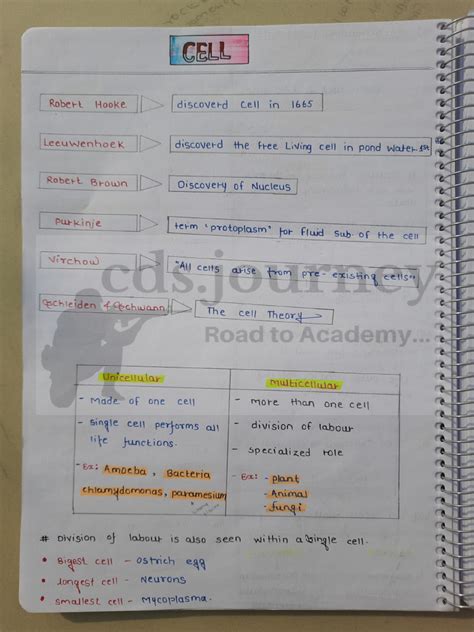 CELL
Robert Hooke discoverd cell in 1665
Leeuwenhoek discoverd the free Living cell in pond water 1st
Robert Brown Discovery of Nucleus
Purkinje term 'protoplasm' for fluid sub. of the cell
Virchow "All cells arise from pre-existing cells"
cds.journey
Schleiden & Schwann The cell Theory
Road to Academy...
Unicellular Multicellular
- Made of one cell - more than one cell
- single cell performs all - division of labour
life functions. - specialized role
- Ex: Amoeba, Bacteria - Ex: - plant
chlamydomonas, paramesium - Animal
- fungi
# Division of labour is also seen within a single cell.
• Bigest cell - ostrich egg
• longest cell - Neurons
• smallest cell - Mycoplasma.